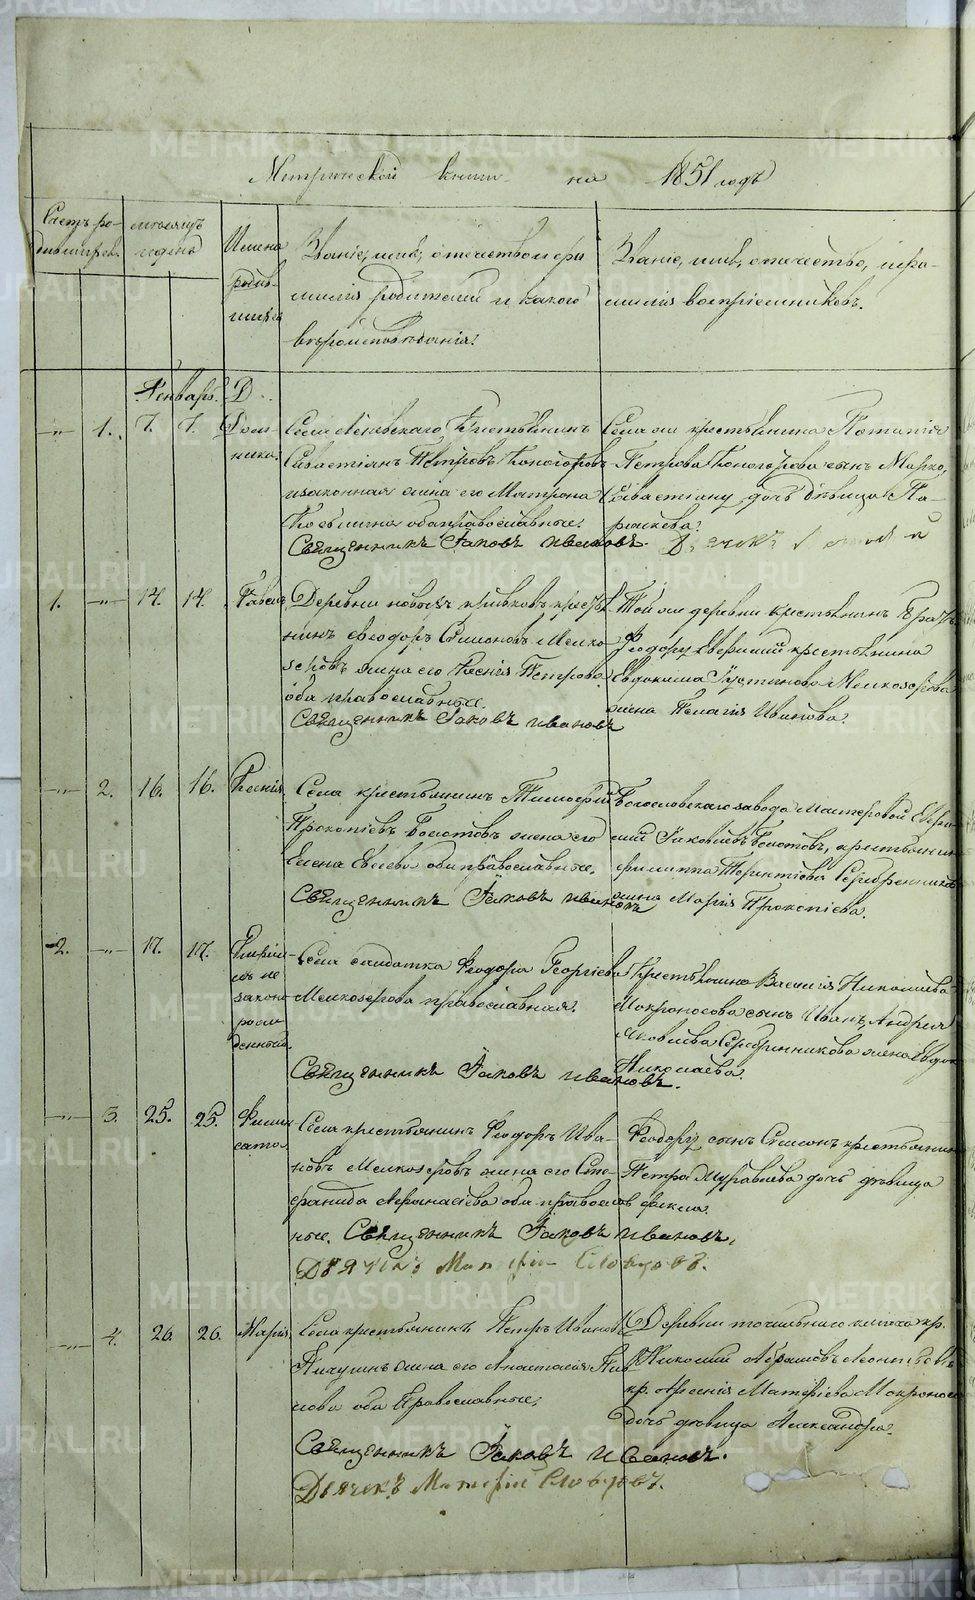 METRIKI.GASO-URAL.RU
Метрической книги на 1851 годъ
Счетъ ро-
дившихся.
месяцъ
и день
Имена
родив-
шихся
Званіе, имя, отечество и фа-
милія родителей и какого
въроисповъданія.
Званіе, имя, отечество, и фа-
милія воспріемниковъ.
Генварь.
1. 7. 7. Дом-
ника.
Села Крестьянинъ
Севастіянъ Петровъ Коногоровъ
и законная жена его Матрона
оба православные.
Священникъ Іаковъ Ивановъ.
Села ом крестьянина Потапія
Петрова Коногорова сынъ Марко,
Севастіану дочь дъвица Па-
раскева.
1. 14. 14. Павелъ
Деревни крестья-
нинъ Феодоръ Симоновъ Мелко-
зеровъ жена его Ксенія Петрова
оба православные.
Священникъ Іаковъ Ивановъ
Той же деревни крестьянинъ
Феодору крестьянина
Евдокима Іустинова Мелкозерова
жена Пелагія Иванова.
2. 16. 16. Ксенія
Села крестьянинъ Тимофей
Прокопіевъ Болотовъ жена его
Елена оба православные.
Священникъ Іаковъ Ивановъ
Богословскаго завода мастеровой
Іаковлевъ Болотовъ, крестьянина
Филиппа Терентіева Серебренникова
жена Марія Прокопіева.
2. 17. 17.
не
законо
рож
денный.
Села солдатка Феодора Георгіева
Мелкозерова православная.
Священникъ Іаковъ Ивановъ.
Крестьянина Василія Николаева
Мокроносова сынъ Иванъ, Андрея
Яковлева Серебренникова жена
Николаева.
3. 25. 25. Фили-
сата.
Села крестьянинъ Феодоръ Ива-
новъ Мелкозеровъ жена его Сте-
фанида Афонасіева оба православ-
ные. Священникъ Іаковъ Ивановъ.
Дьячекъ Словцовъ.
Феодору сынъ Симеонъ крестьянина
Петра Муравьева дочь дъвица
Фекла.
4. 26. 26. Марія
Села крестьянинъ Петръ Ивановъ
Пичугинъ жена его Анастасія
оба Православные.
Священникъ Іаковъ Ивановъ.
Дьячекъ Словцовъ.
Деревни кр.
Николай Абрамовъ Леонтьевъ
кр. Арсенія Матфіева Мокроносова
дочь дъвица Александра.